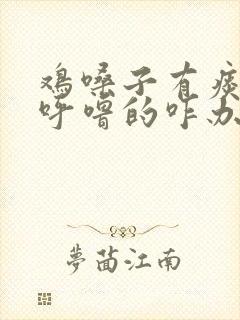 鸡嗓子有痰
呼噜的咋办
梦茵江南